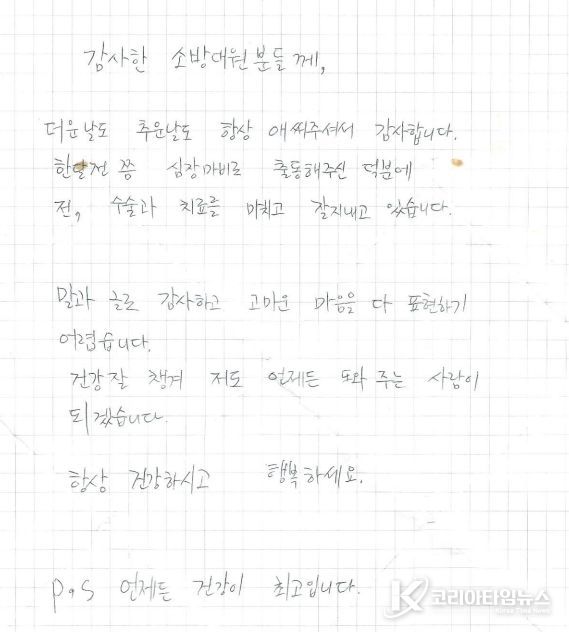 감사한 소방대원분들께,
더운날도 추운날도 항상 애써주셔서 감사합니다.
한달전 쯤 심장마비로 출동해주신 덕분에
전, 수술과 치료를 마치고 잘지내고 있습니다.
말과 글로 감사하고 고마운 마음을 다 표현하기
어렵습니다.
건강 잘 챙겨 저도 언제든 도와 주는 사람이
되겠습니다.
항상 건강하시고 행복하세요.
P.S 언제든 건강이 최고입니다.
K 코리아타임뉴스
Korea Time News